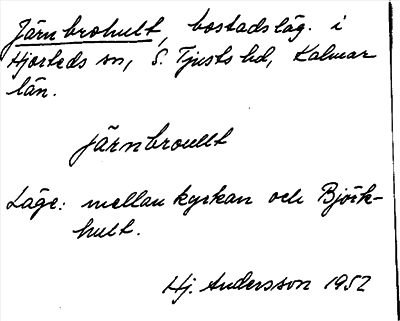 Järnbrohult, bostadsläg. i
Hjorteds sn, S. Tjusts hd, Kalmar
län.
järnbroullt
Läge: mellan kyrkan och Björk-
hult.
Hj. Andersson 1952